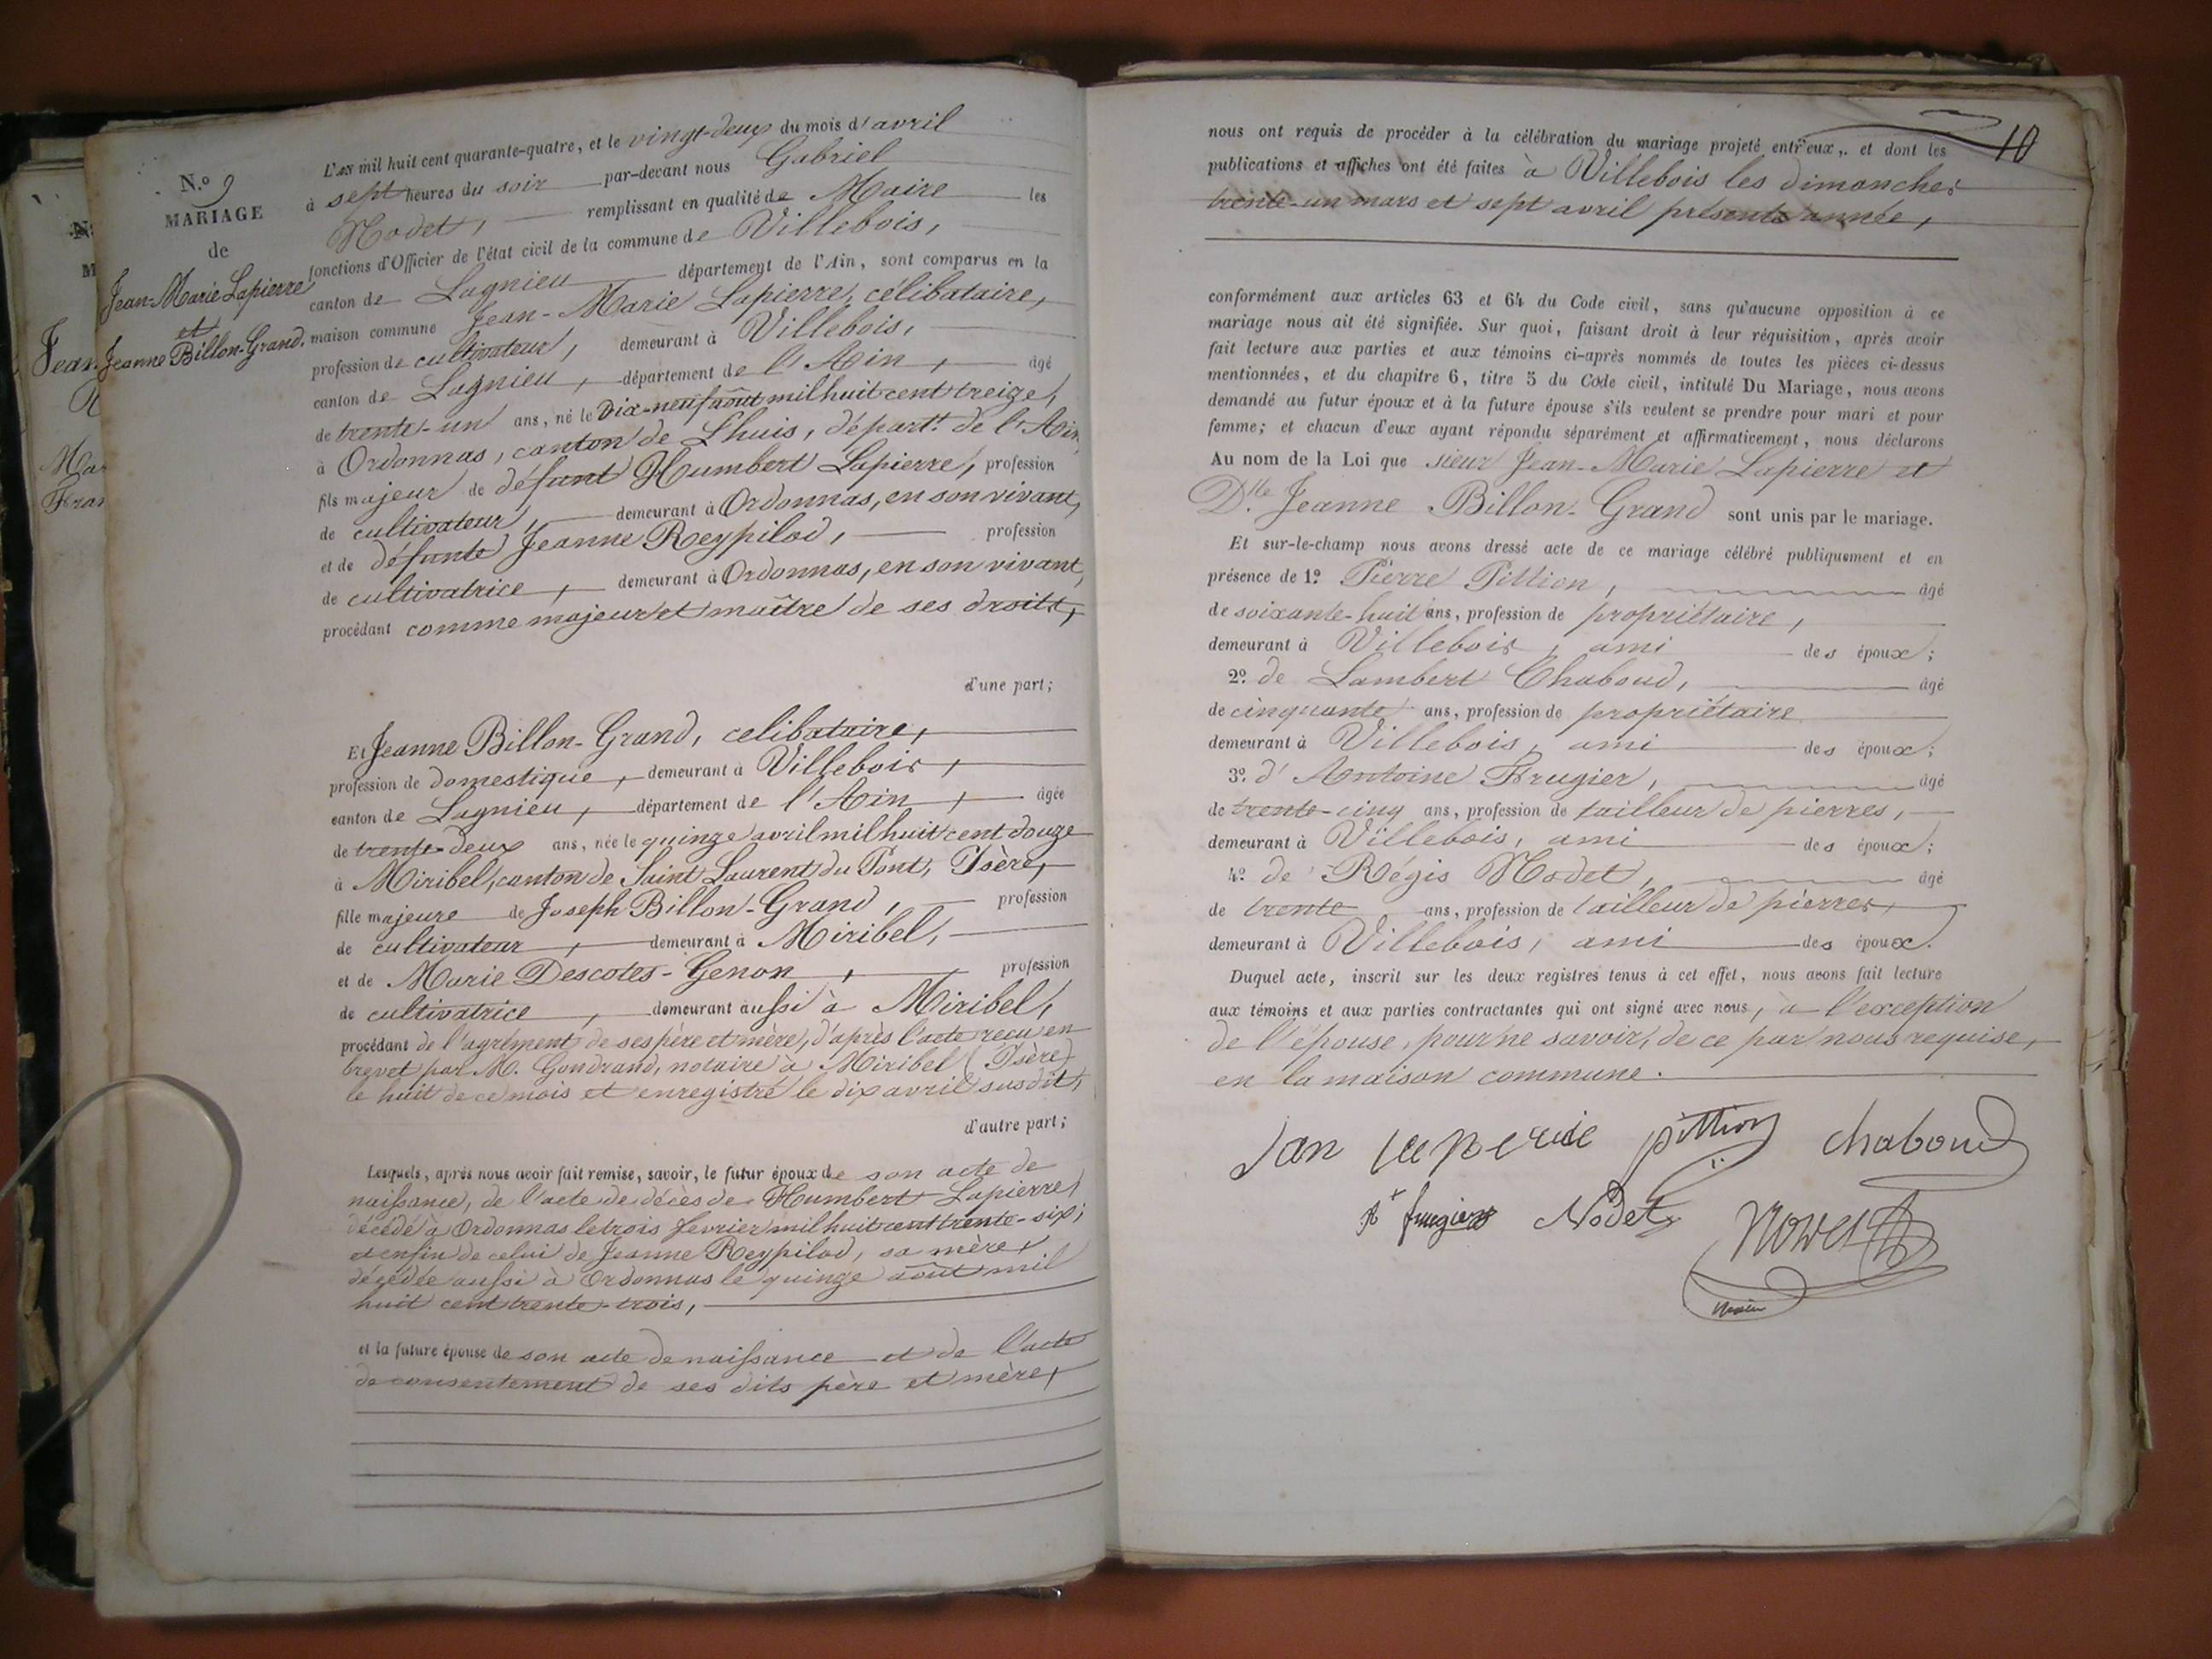 N.º 9
MARIAGE
de
Jean-Marie Lapierre
et
Jeanne Billon-Grand.
L'an mil huit cent quarante-quatre, et le vingt-deux du mois d'avril
à sept heures du soir par-devant nous Gabriel
Nodet, remplissant en qualité de Maire les
fonctions d'Officier de l'état civil de la commune de Villebois,
canton de Lagnieu département de l'Ain, sont comparus en la
maison commune Jean-Marie Lapierre, célibataire,
profession de cultivateur, demeurant à Villebois,
canton de Lagnieu, département de l'Ain, âgé
de trente-un ans, né le Dix-neuf août mil huit cent treize,
à Ordonnas, canton de Lhuis, départt. de l'Ain
fils majeur de défunt Humbert Lapierre, profession
de cultivateur, demeurant à Ordonnas, en son vivant,
et de défunte Jeanne Reypilod, profession
de cultivatrice, demeurant à Ordonnas, en son vivant,
procédant comme majeur et maître de ses droits,
d'une part;
Et Jeanne Billon-Grand, celibataire,
profession de domestique, demeurant à Villebois,
canton de Lagnieu, département de l'Ain, âgée
de trente-deux ans, née le quinze avril mil huit cent douze
à Miribel, canton de Saint Laurent du Pont, Isère,
fille majeure de Joseph Billon-Grand, profession
de cultivateur, demeurant à Miribel,
et de Marie Descotes-Genon, profession
de cultivatrice, demeurant aussi à Miribel,
procédant de l'agrément de ses père et mère, d'après l'acte reçu en
brevet par M. Gondrand, notaire à Miribel (Isère)
le huit de ce mois et enregistré le dix avril susdit,
d'autre part;
Lesquels, après nous avoir fait remise, savoir, le futur époux de son acte de
naissance, de l'acte de décès de Humbert Lapierre,
décédé à Ordonnas le trois fevrier mil huit cent trente-six;
et enfin de celui de Jeanne Reypilod, sa mère,
décédée aussi à Ordonnas le quinze août mil
huit cent trente-trois,
et la future épouse de son acte de naissance et de l'acte
de consentement de ses dits père et mère,
10
nous ont requis de procéder à la célébration du mariage projeté entr'eux, et dont les
publications et affiches ont été faites à Villebois les dimanches
trente-un mars et sept avril présente année,
conformément aux articles 63 et 64 du Code civil, sans qu'aucune opposition à ce
mariage nous ait été signifiée. Sur quoi, faisant droit à leur réquisition, après avoir
fait lecture aux parties et aux témoins ci-après nommés de toutes les pièces ci-dessus
mentionnées, et du chapitre 6, titre 5 du Code civil, intitulé Du Mariage, nous avons
demandé au futur époux et à la future épouse s'ils veulent se prendre pour mari et pour
femme; et chacun d'eux ayant répondu séparément et affirmativement, nous déclarons
Au nom de la Loi que sieur Jean-Marie Lapierre et
Dlle. Jeanne Billon-Grand sont unis par le mariage.
Et sur-le-champ nous avons dressé acte de ce mariage célébré publiquement et en
présence de 1º Pierre Pittion, âgé
de soixante-huit ans, profession de propriétaire,
demeurant à Villebois, ami des époux;
2º de Lambert Chaboud, âgé
de cinquante ans, profession de propriétaire
demeurant à Villebois, ami des époux;
3º d'Antoine Frugier, âgé
de trente-cinq ans, profession de tailleur de pierres,
demeurant à Villebois, ami des époux;
4º de Régis Nodet, âgé
de trente ans, profession de tailleur de pierres,
demeurant à Villebois, ami des époux.
Duquel acte, inscrit sur les deux registres tenus à cet effet, nous avons fait lecture
aux témoins et aux parties contractantes qui ont signé avec nous, à l'exception
de l'épouse, pour ne savoir, de ce par nous requise,
en la maison commune.
Jan pittion chaboud
frugier Nodet Nodet
Maire